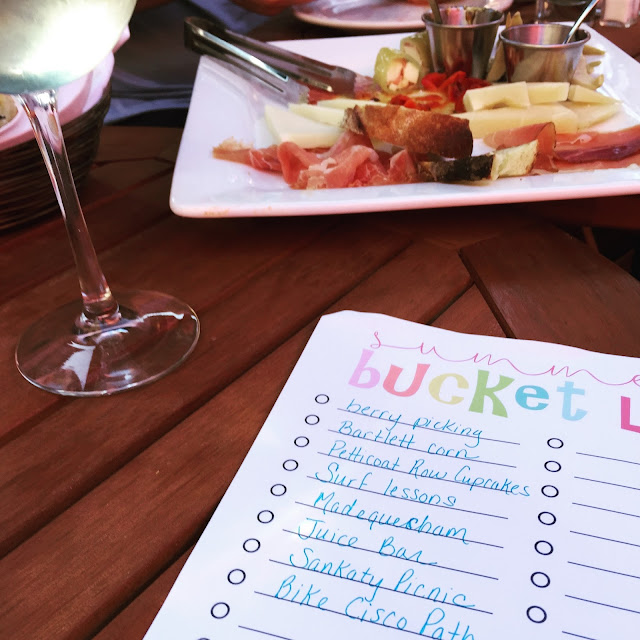 summe
bucket L
berry picking
Bartlett corn
Petticoat Row Cupcakes
Surf lessons
Madequecham
Juice Bar
Sankaty Picnic
Bike Cisco Path